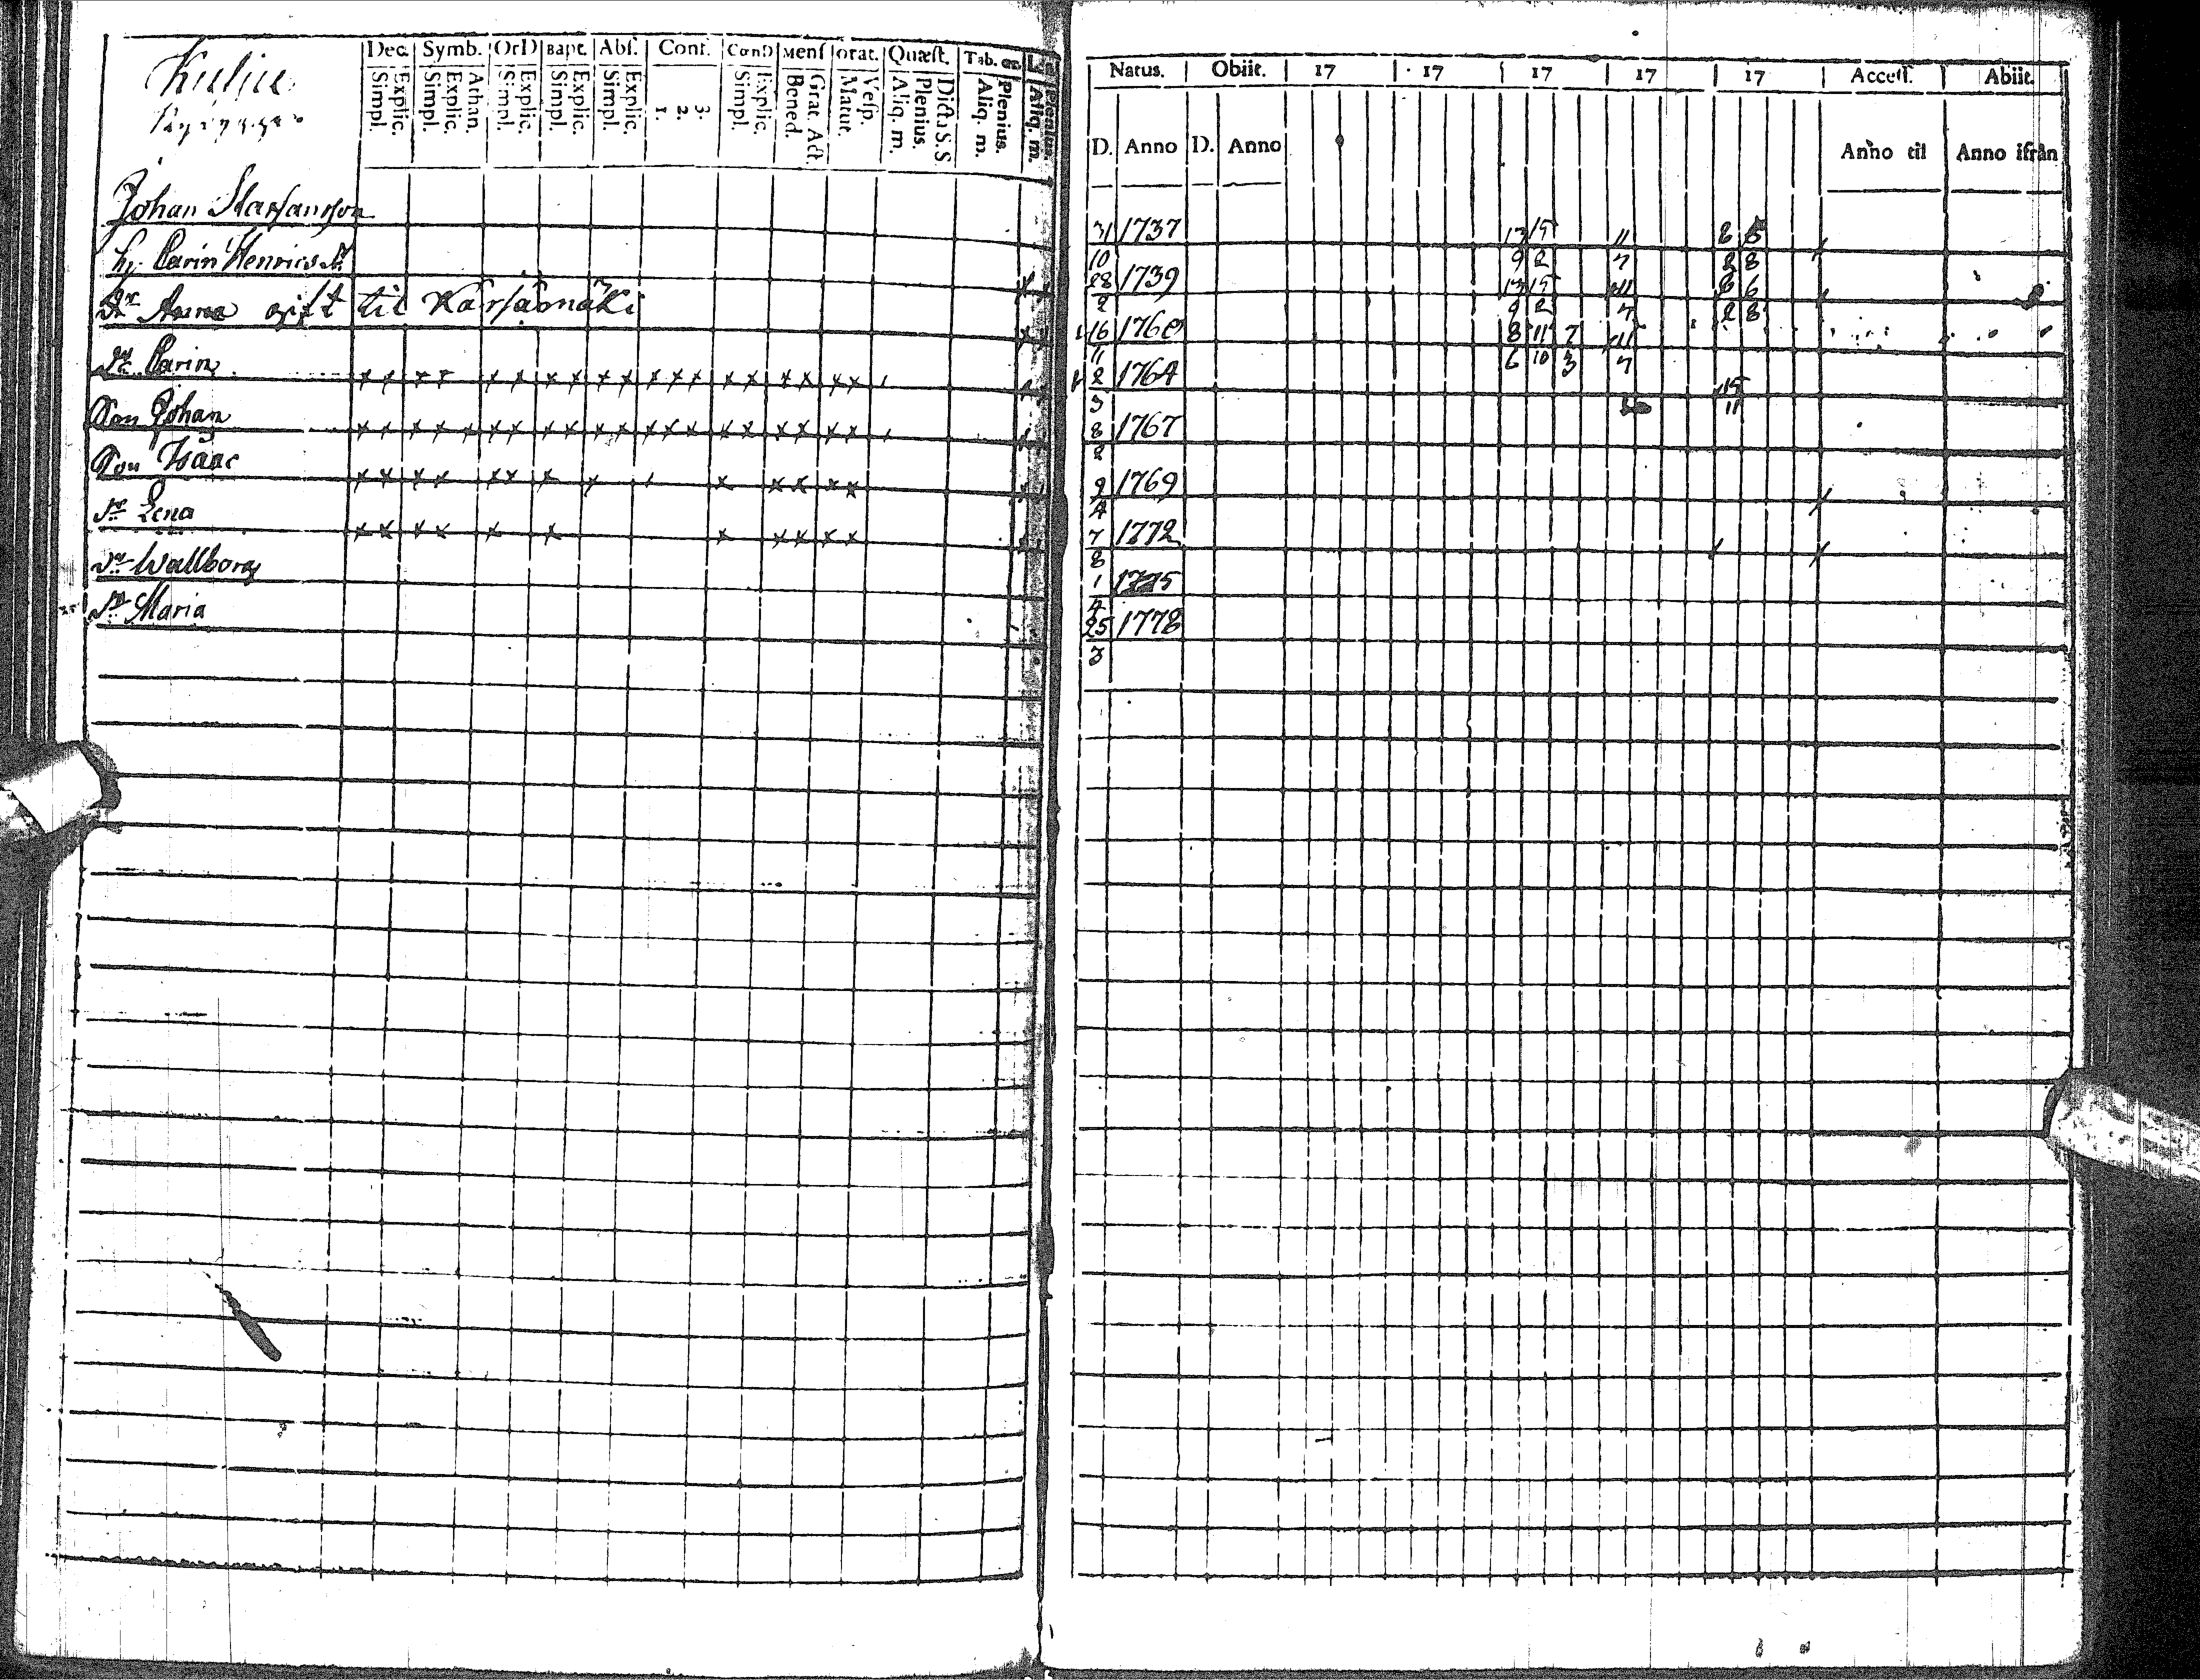 Dec. Symb. OrD Bapt. Abs. Conf. CœnD Mens Orat. Quæst. Tab. œc.
Simpl. Explic. Simpl. Explic. Athan. Simpl. Explic. Simpl. Explic. Simpl. Explic. 1. 2. 3. Simpl. Explic. Bened. Grat. Act. Matut. Vesp. Aliq. m. Plenius. Dicta S. S Aliq. m. Plenius. Aliq. m. Plenius.
Johan Staffansson
h. Carin Henricsdr
Dr Anna gift til Kärsämäki
Dr Carin
Son Johan
Son Isaac
Dr Lena
Dr Wallborg
Dr Maria
Natus. Obiit. 17 17 17 17 17 Access. Abiit.
D. Anno D. Anno Anno til Anno ifrån
31 1737 13 15 11 2 5
10 9 2 7 2 8
28 1739 13 15 11 6 6
2 9 2 7 2 8
16 1760 8 11 7 11
11 6 10 3 7
2 1764 15
3 11
8 1767
2
9 1769
4
7 1772
8
1 1775
4
25 1778
3